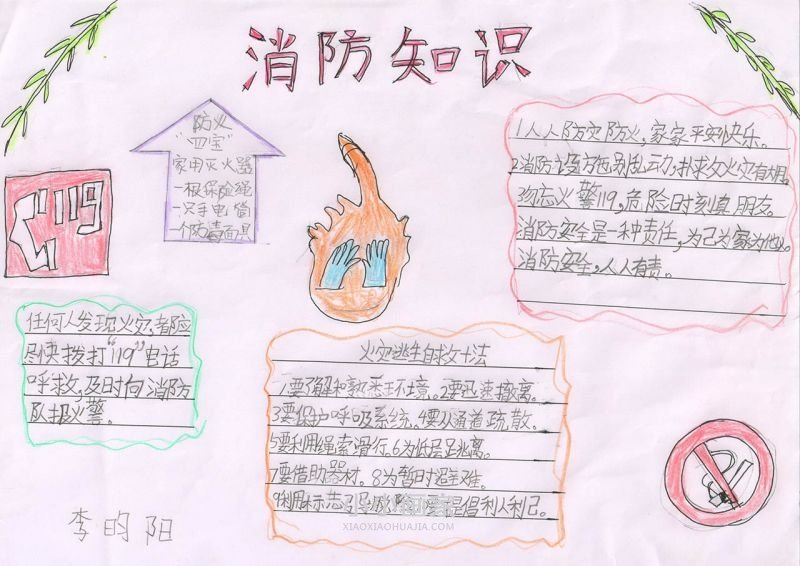 消防知识
防火
"四宝"
家用灭火器
一根保险绳
一只手电筒
一个防毒面具
119
1人人防灾防火,家家平安快乐。
2消防设方包别乱动,扑求火灾有大用。
3勿忘火警119,危险时刻真朋友。
消防安全是一种责任,为己为家为他人。
消防安全,人人有责。
任何人发现火灾,都应
尽快拨打"119"电话
呼救,及时向消防
队报火警。
火灾逃生自救十法
1要了解和熟悉环境。2要迅速撤离。
3要保护呼吸系统。4要从通道疏散。
5要利用绳索滑行。6为低层跳离。
7要借助器材。8为暂时避难。
9利用标志引导脱险。要提倡利人利己。
XIAOXIAOHUAJIA.COM
李昀阳